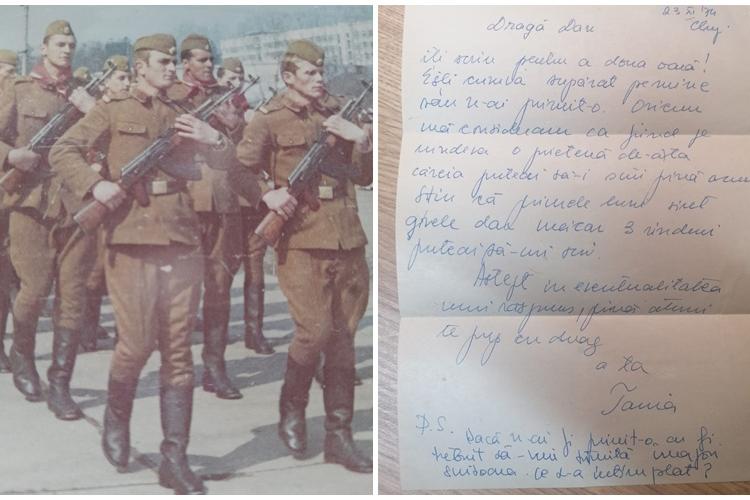 23 XI '74
Cluj
Dragă Dan
îți scriu pentru a doua oară!
Ești cumva supărat pe mine
sau n-ai primit-o. Oricum
mă consideram ca fiind pe
undeva o prietenă de-asta
căreia puteai să-i scrii până acum
Știu că primele luni sînt
grele dar măcar 3 rînduri
puteai să-mi scrii.
Aștept în eventualitatea
unui răspuns, pînă atunci
te pup cu drag
a ta
Tania
P.S. Dacă n-ai fi primit-o ar fi
trebuit să-mi
ce s-a întîmplat?